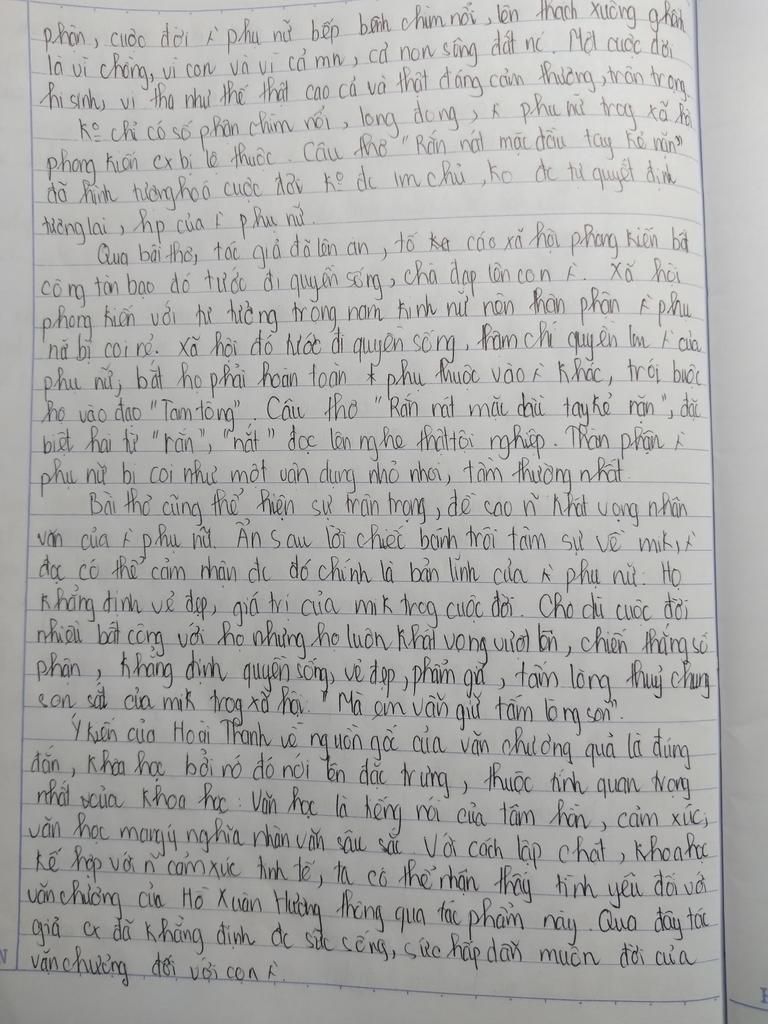 phận, cuộc đời ng phụ nữ bếp bênh chìm nổi, lên thạch xuống ghềnh
là vì chồng, vì con và vì cả mn, cả non sông đất nc. Một cuộc đời
hi sinh, vị tha như thế thật cao cả và thật đáng cảm thương, trân trọng.
Ko chỉ có số phận chìm nổi, long đong, phụ nữ trog xã hội
phong kiến cx bị lệ thuộc. Câu thơ "Rắn nát mặc dầu tay kẻ nặn"
đã hình tượng hoá cuộc đời ko đc lm chủ, ko đc tự quyết định
tương lai, hp của phụ nữ.
Qua bài thơ, tác giả đã lên án, tố cáo xã hội phong kiến bất
công tàn bạo đó tước đi quyền sống, chà đạp lên con. Xã hội
phong kiến với tư tưởng trọng nam kinh nữ nên thân phận phụ
nữ bị coi rẻ. Xã hội đó tước đi quyền sống, thậm chí quyền lm của
phụ nữ, bắt họ phải hoàn toàn phụ thuộc vào khác, trói buộc
họ vào đạo "Tam tòng". Câu thơ "Rắn nát mặc dù tay kẻ nặn", đặc
biệt hai từ "rắn", "nát" đọc lên nghe thật tội nghiệp. Thân phận
phụ nữ bị coi như một vận dụng nhỏ nhoi, tầm thường nhất.
Bài thơ cũng thể hiện sự trân trọng, đề cao khát vọng nhân
văn của phụ nữ. Ẩn sau lời chiếc bánh trôi tâm sự về mik,
đọc có thể cảm nhận đc đó chính là bản lĩnh của phụ nữ: Họ
khẳng định vẻ đẹp, giá trị của mik trog cuộc đời. Cho dù cuộc đời
nhiều bất công với họ nhưng họ luôn khát vọng vươn lên, chiến thắng số
phận, khẳng định quyền sống, vẻ đẹp, phẩm giá, tấm lòng thuỷ chung
son sắt của mik trog xã hội. "Mà em vẫn giữ tấm lòng son".
Ý kiến của Hoài Thanh về nguồn gốc của văn chương quả là đúng
đắn, khoa học bởi nó đó nói lên đặc trưng, thuộc tính quan trọng
nhất của khoa học: Văn học là tiếng nói của tâm hồn, cảm xúc,
văn học mang ý nghĩa nhân văn sâu sắc. Với cách lập chất, khoa học
kế hợp với cảm xúc tinh tế, ta có thể nhận thấy tình yêu đối với
văn chương của Hồ Xuân Hương thông qua tác phẩm này. Qua đây tác
giả cx đã khẳng định đc sức sống, sức hấp dẫn muôn đời của
văn chương đối với con